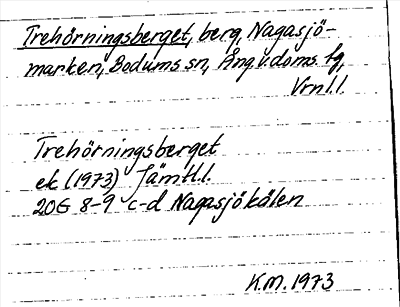 Trehörningsberget, berg, Nagasjö-
marken, Bodums sn, Ång.v.doms fg,
Vrnl.l.
Trehörningsberget
ek (1973) Jämtl.l.
20G 8-9 c-d Nagasjökälen
K.M. 1973